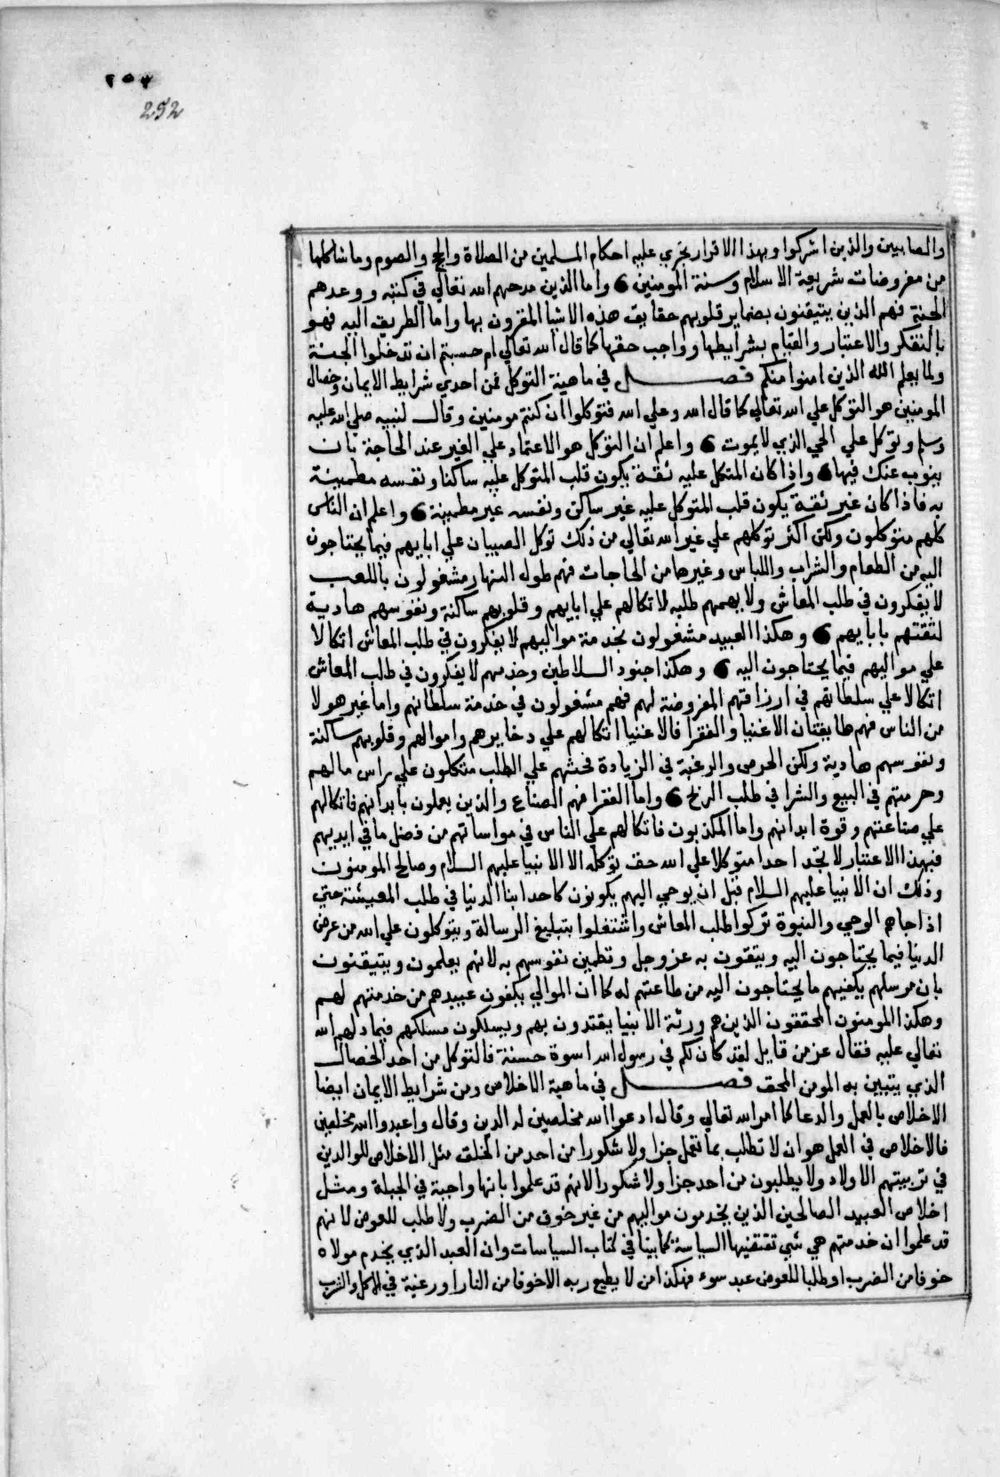 ٢٥٣
252
والصابيين والذين اشركوا وبهذا الاقرار يجري عليه احكام المسلمين من الصلاة والحج والصوم وما شاكلها
من مفروضات شريعة الاسلام وسنة المومنين 6 واما الذين مدحهم الله تعالي في كتبه ووعدهم
الجنة فهم الذين يتيقنون بضماير قلوبهم حقايق هذه الاشيا المقرون بها واما الطريق اليه فهو
بالتفكر والاعتبار والقيام بشرايطها وواجب حقها كما قال الله تعالي ام حسبتم ان تدخلوا الجنة
ولما يعلم الله الذين امنوا منكم فصل في ماهية التوكل فمن احدي شرايط الايمان وخصال
المومنين هو التوكل علي الله تعالي كما قال الله وعلي الله فتوكلوا ان كنتم مومنين وقال لنبيه صلي الله عليه
وسلم وتوكل علي الحي الذي لا يموت 6 واعلم ان التوكل هو الاعتماد علي الغير عند الحاجة بان
ينوب عنك فيها 6 واذا كان المتكل عليه ثقة يكون قلب المتوكل عليه ساكنا ونفسه مطمينة
به فاذا كان غير ثقة يكون قلب المتوكل عليه غير ساكن ونفسه غير مطمينة 6 واعلم ان الناس
كلهم متوكلون ولكن اكثر توكلهم علي غير الله تعالي من ذلك توكل الصبيان علي ابايهم فيما يحتاجون
اليه من الطعام والشراب واللباس وغيرها من الحاجات فهم طول النهار مشغولون باللعب
لا يفكرون في طلب المعاش ولا يهمهم طلبه لاتكالهم علي ابايهم وقلوبهم ساكنة ونفوسهم هادية
لثقتهم بابايهم 6 وهكذا العبيد مشغولون بخدمة مواليهم لا يفكرون في طلب المعاش اتكالا
علي مواليهم فيما يحتاجون اليه 6 وهكذا جنود السلاطين وخدمهم لا يفكرون في طلب المعاش
اتكالا علي سلطانهم في ارزاقهم المفروضة لهم فهم مشغولون في خدمة سلطانهم واما غير هولا
من الناس فهم طايفتان الاغنيا والفقرا فالاغنيا اتكالهم علي دخايرهم واموالهم وقلوبهم ساكنة
ونفوسهم هادية ولكن الحرص والرغبة في الزيادة تحثهم علي الطلب متكلون علي راس مالهم
وحرمتهم في البيع والشرا في طلب الربح 6 واما الفقرا فهم الصناع والذين يعملون بابدانهم فاتكالهم
علي صناعتهم وقوة ابدانهم واما المكديون فاتكالهم علي الناس في مواساتهم من فضل ما في ايديهم
فبهذا الاعتبار لا تجد احدا متوكلا علي الله حق توكله الا الانبيا عليهم السلام وصالح المومنون
وذلك ان الانبيا عليهم السلام قبل ان يوحي اليهم يكونون كاحد ابنا الدنيا في طلب المعيشة حتي
اذا جاهم الوحي والنبوة تركوا طلب المعاش واشتغلوا بتبليغ الرسالة ويتوكلون علي الله من عرض
الدنيا فيما يحتاجون اليه ويتقون به عز وجل وتطمين نفوسهم به لانهم يعلمون ويتيقنون
بان مرسلهم يكفيهم ما يحتاجون اليه من طاعتهم له كما ان الموالي يكفون عبيدهم من خدمتهم لهم
وهكذا المومنون المحققون الذين هم ورثة الانبيا يقتدون بهم ويسلكون مسلكهم فيما دلهم الله
تعالي عليه فقال عز من قايل لقد كان لكم في رسول الله اسوة حسنة فالتوكل من احد الخصال
الذي يتبين به المومن المحق فصل في ماهية الاخلاص ومن شرايط الايمان ايضا
الاخلاص بالعمل والدعا كما امر الله تعالي وقال ادعوا الله مخلصين له الدين وقال واعبدوا الله مخلصين
فالاخلاص في العمل هو ان لا تطلب بما تعمل جزا ولا شكورا من احد من الخلق مثل الاخلاص للوالدين
في تربيتهم الاولاد ولا يطلبون من احد جزا ولا شكورا لانهم قد علموا بانها واجبة في الجبلة ومثل
اخلاص العبيد الصالحين الذين يخدمون مواليهم من غير خوف من الضرب ولا طلب للعوض لانهم
قد علموا ان خدمتهم هي شي تقتضيها السياسة كما بينا في كتاب السياسات وان العبد الذي يخدم مولاه
خوفا من الضرب او طلبا للعوض عبد سوء فهكذا من لا يطيع ربه الا خوفا من النار او رغبة في الاكل والشرب